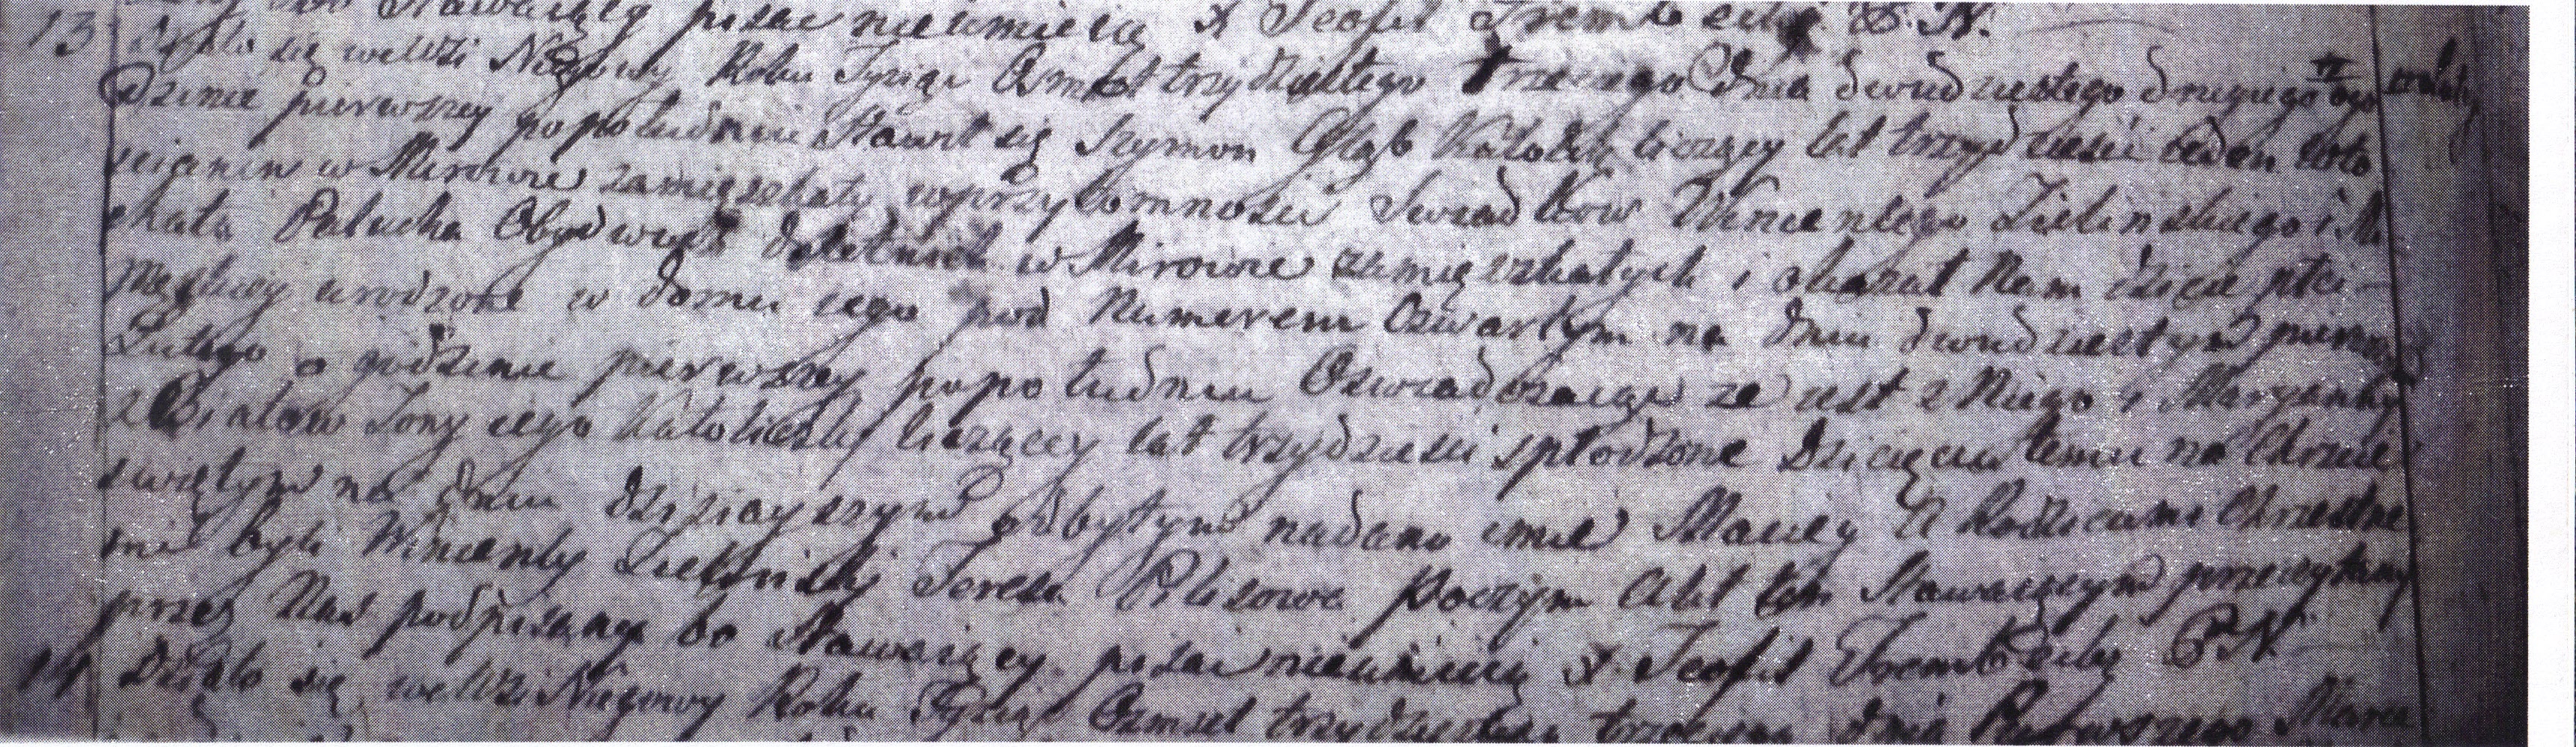 Stawaiący pisać nieumieią X Teofil Trembecki P. N.
13 Działo się wewsi Niegowy Roku Tysiąc Osmset trzydziestego trzeciego Dnia dwudziestego drugiego Lutego
Dzinie pierwszey popołudniu Stawił się Szymon Głąb Katolik liczący lat trzydzieści ieden Wło
scianin w Mirowie zamieszkały wprzytomności Swiadkow Wincentego Zielinskiego i Mi
chała Palucha Obydwuch doletnich w Mirowie zamieszkałych i okazał Nam dziecie płci
Męzkiey urodzone w domu iego pod Numerem Czwartym na dniu dwudziestym pierwszym
Lutego o godzinie pierwszey popołudniu Oswiadczaiąc ze iest z Niego i Maryanny
z Białow Zony iego Katoliczki liczącey lat trzydzieści spłodzone Dziecięciu temu na Chrzcie
swiętym na dniu dzisieyszym odbytym nadano imie Maciey A Rodzicami Chrzestne
mi byli Wincenty Zielinski Teresa Pilisowa Poczym Akt ten Stawaiącym przeczytany
przez Nas podpisany bo Stawaiący pisać nieumieią X. Teofil Trembecki P. N.
14 Działo się wewsi Niegowy Roku Tysiąc Osmset trzydziestego trzeciego dnia Pierwszego Marca